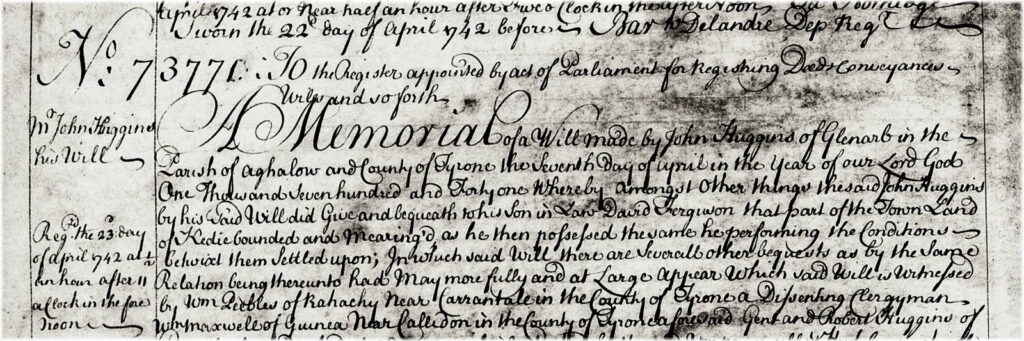 April 1742 at or near half an hour after two o Clock in the after Noon
Sworn the 22d day of April 1742 before Bar Delandre Dep Regr
No: 73771: To the Register appointed by act of Parliament for Registring Deeds Conveyances
Wills and so forth
Mr John Huggins
his Will
A Memorial of a Will made by John Huggins of Glenarb in the
Parish of aghalow and County of Tyrone the Seventh Day of April in the Year of our Lord God
One Thousand Seven hundred and Forty one Whereby amongst Other things the said John Huggins
by his Said Will did Give and bequeath to his Son in Law David Ferguson that part of the Town Land
of Kedie bounded and Mearing'd as he then possessed the same he performing the Conditions
betwixt them settled upon; In which said Will there are Severall other bequests as by the Same
Relation being thereunto had May more fully and at Large Appear Which said Will is Witnessed
by Wm Peebles of Rahachy Near Carrantale in the County of Tyrone a Dissenting Clergyman
Wm Maxwell of Guinea Near Callidon in the County of Tyrone aforesaid Gent and Robert Huggins of
Regd: the 23: day
of April 1742 at ½
an hour after 11
a Clock in the fore
noon